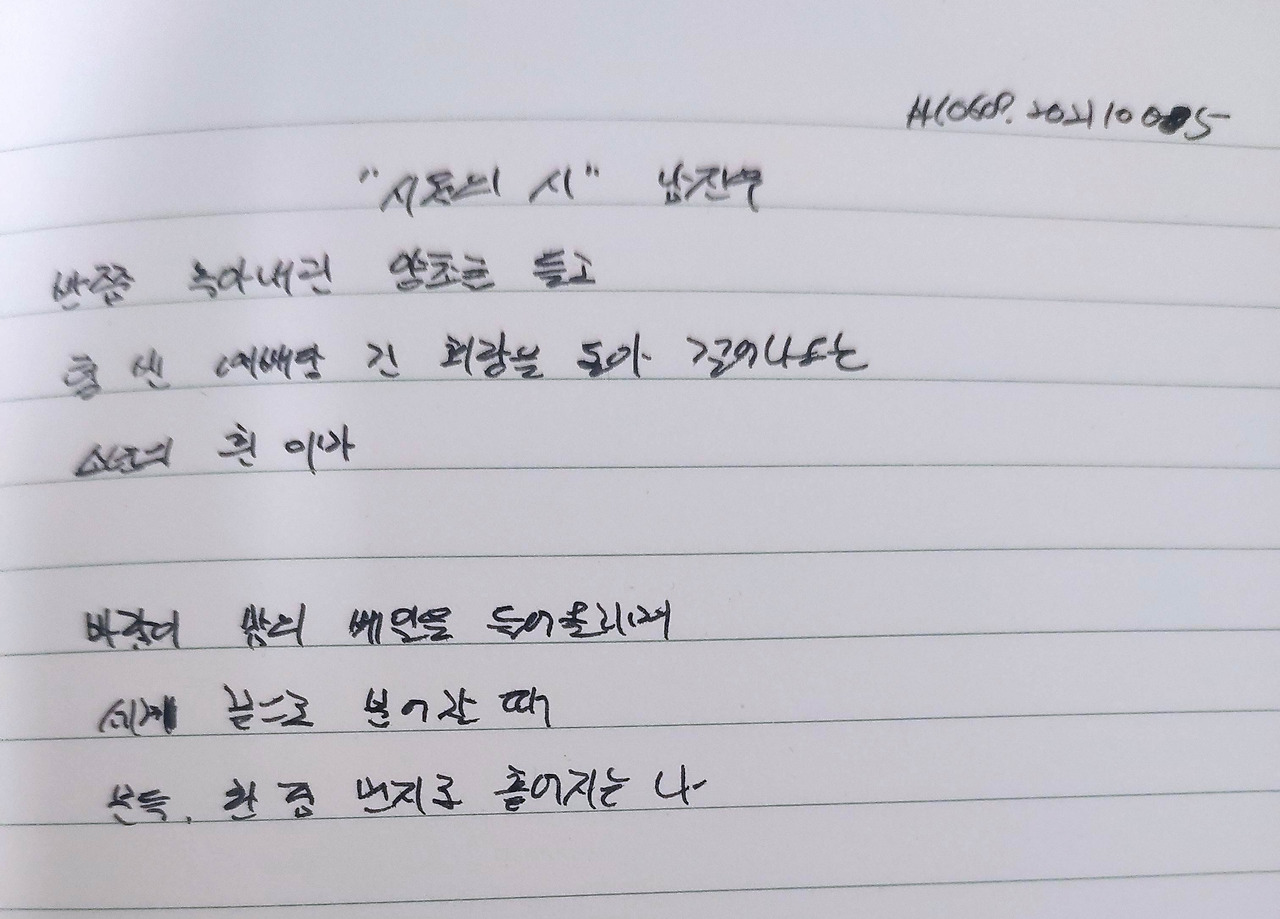 H1060P. 20211005
"시초의 시" 남진우
반쯤 녹아내린 양초를 들고
홀 센 예배당 긴 회랑을 돌아 걸어나오는
소년의 흰 이마
바람이 밤의 베일을 들어올리며
세계 끝으로 불어갈 때
선득, 한 점 먼지로 흩어지는 나